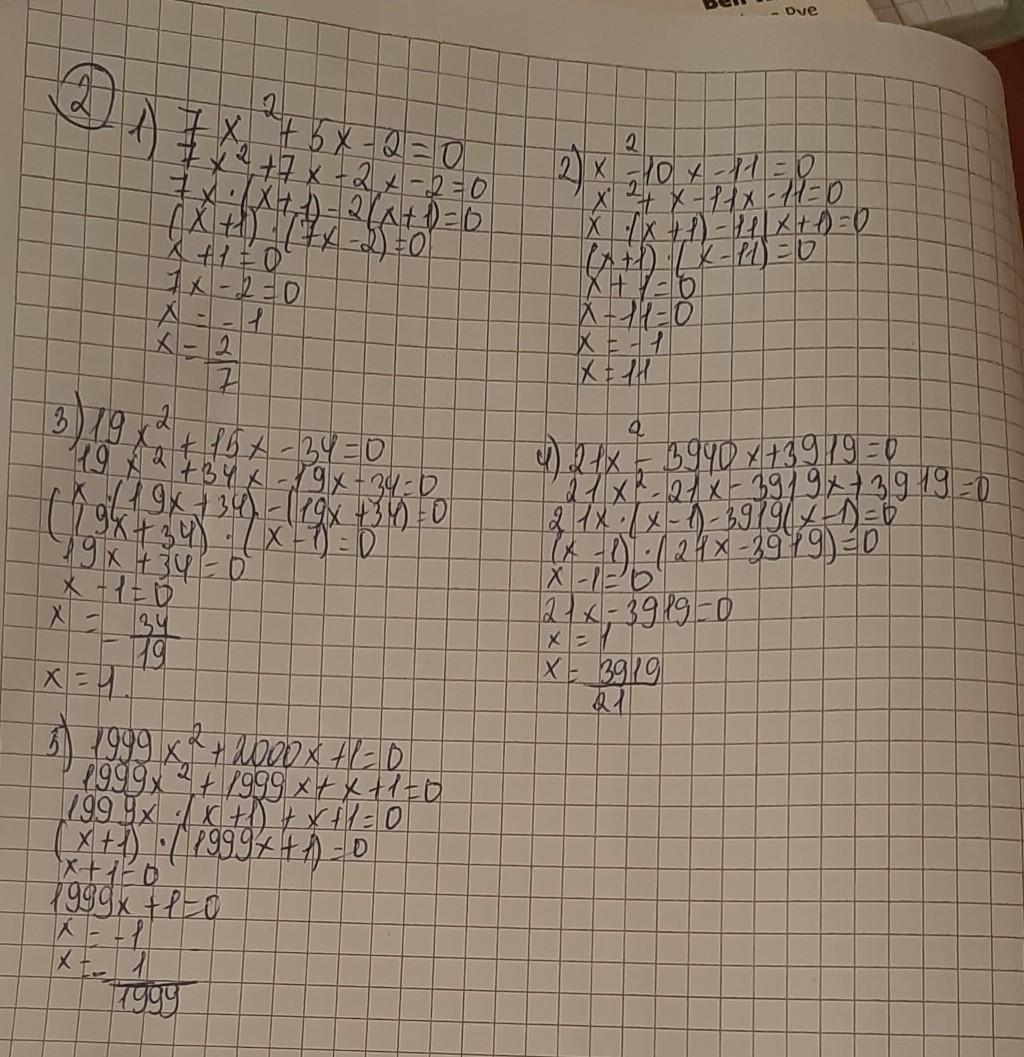 2
1) 7x² + 5x - 2 = 0
7x² + 7x - 2x - 2 = 0
7x · (x + 1) - 2(x + 1) = 0
(x + 1) · (7x - 2) = 0
x + 1 = 0
7x - 2 = 0
x = -1
x = 2/7
2) x² - 10x - 11 = 0
x² + x - 11x - 11 = 0
x · (x + 1) - 11(x + 1) = 0
(x + 1) · (x - 11) = 0
x + 1 = 0
x - 11 = 0
x = -1
x = 11
3) 19x² + 15x - 34 = 0
19x² + 34x - 19x - 34 = 0
x · (19x + 34) - (19x + 34) = 0
(19x + 34) · (x - 1) = 0
19x + 34 = 0
x - 1 = 0
x = - 34/19
x = 1.
4) 21x² - 3940x + 3919 = 0
21x² - 21x - 3919x + 3919 = 0
21x · (x - 1) - 3919(x - 1) = 0
(x - 1) · (21x - 3919) = 0
x - 1 = 0
21x - 3919 = 0
x = 1
x = 3919/21
5) 1999x² + 2000x + 1 = 0
1999x² + 1999x + x + 1 = 0
1999x · (x + 1) + x + 1 = 0
(x + 1) · (1999x + 1) = 0
x + 1 = 0
1999x + 1 = 0
x = -1
x = - 1/1999